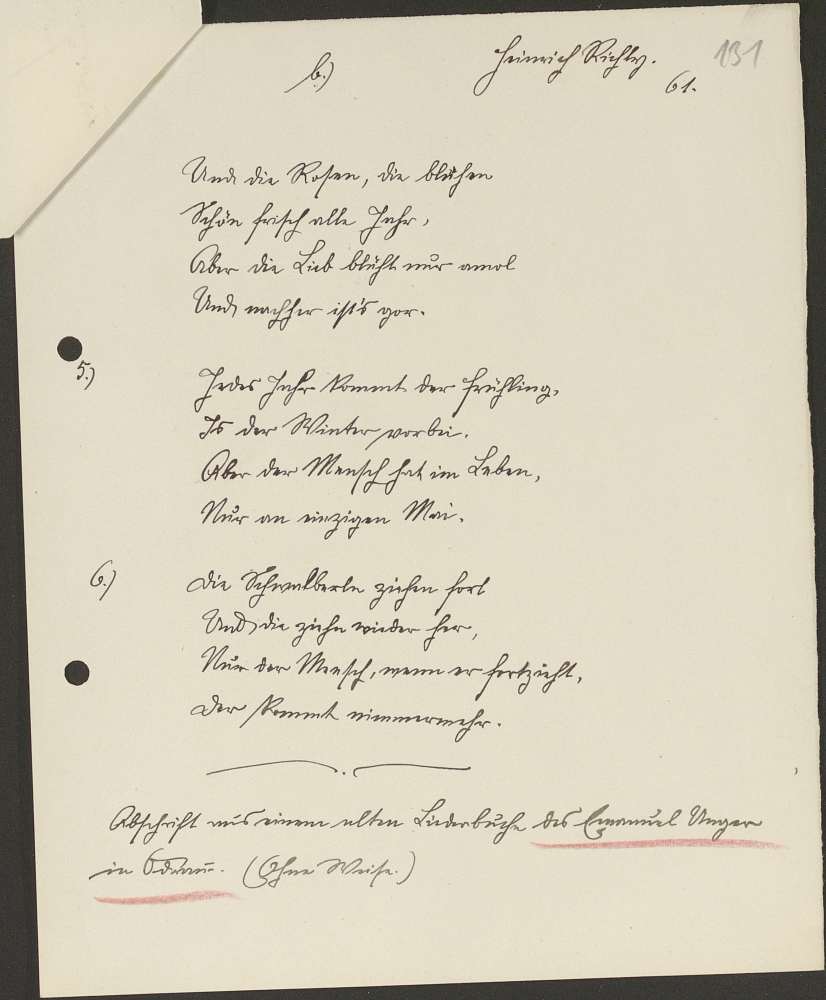 b.)
Heinrich Richly.
131
61.
Und die Rosen, die blühen
Schön frisch alle Jahr,
Aber die Lieb blüht nur amol
Und nachher ist's gor.
5.)
Jedes Jahr kommt der Frühling,
Is der Winter vorbei.
Aber der Mensch hat im Leben,
Nur an einzigen Mai.
6.)
Die Schwalberln ziehen fort
Und die ziehn wieder her,
Nur der Mensch, wenn er fortzieht,
Der kommt nimmermehr.
Abschrift aus einem alten Liederbuche des Emanuel Unger
in Odrau. (Ohne Weise.)